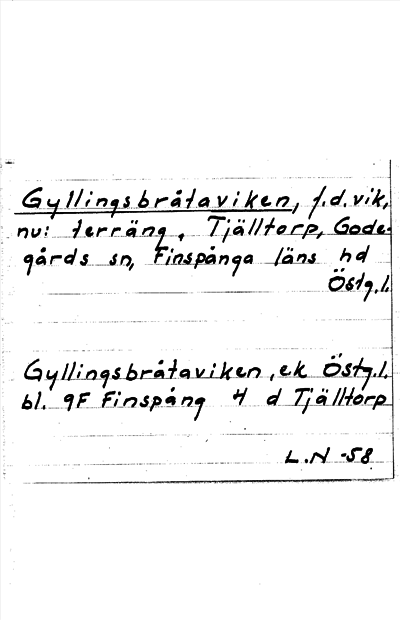 Gyllingsbråtaviken, f.d. vik,
nu: terräng, Tjälltorp, Gode-
gårds sn, Finspånga läns hd
Östg.l.
Gyllingsbråtaviken, ek Östg.l.
bl. 9F Finspång 4 d Tjälltorp
L.N -58